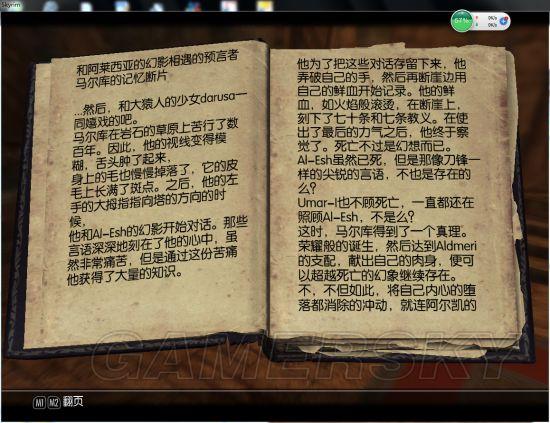 Skyrim
67%
0K/s
0K/s
和阿莱西亚的幻影相遇的预言者
马尔库的记忆断片
...然后，和大猿人的少女darusa一
同嬉戏的吧。
马尔库在岩石的草原上苦行了数
百年。因此，他的视线变得模
糊，舌头肿了起来，
身上的毛也慢慢掉落了，它的皮
毛上长满了斑点。之后，他的左
手的大拇指指向塔的方向的时
候，
他和Al-Esh的幻影开始对话。那些
言语深深地刻在了他的心中，虽
然非常痛苦，但是通过这份苦痛
他获得了大量的知识。
他为了把这些对话存留下来，他
弄破自己的手，然后再断崖边用
自己的鲜血开始记录。他的鲜
血，如火焰般滚烫，在断崖上，
刻下了七十条和七条教义。在使
出了最后的力气之后，他终于察
觉了。死亡不过是幻想而已。
Al-Esh虽然已死，但是那像刀锋一
样的尖锐的言语，不也是存在的
么？
Umar-I也不顾死亡，一直都还在
照顾Al-Esh，不是么？
这时，马尔库得到了一个真理。
荣耀般的诞生，然后达到Aldmeri
的支配，献出自己的肉身，便可
以超越死亡的幻象继续存在。
不，不但如此，将自己内心的堕
落都消除的冲动，就连阿尔凯的
GAMERSKY
M1 M2 翻页